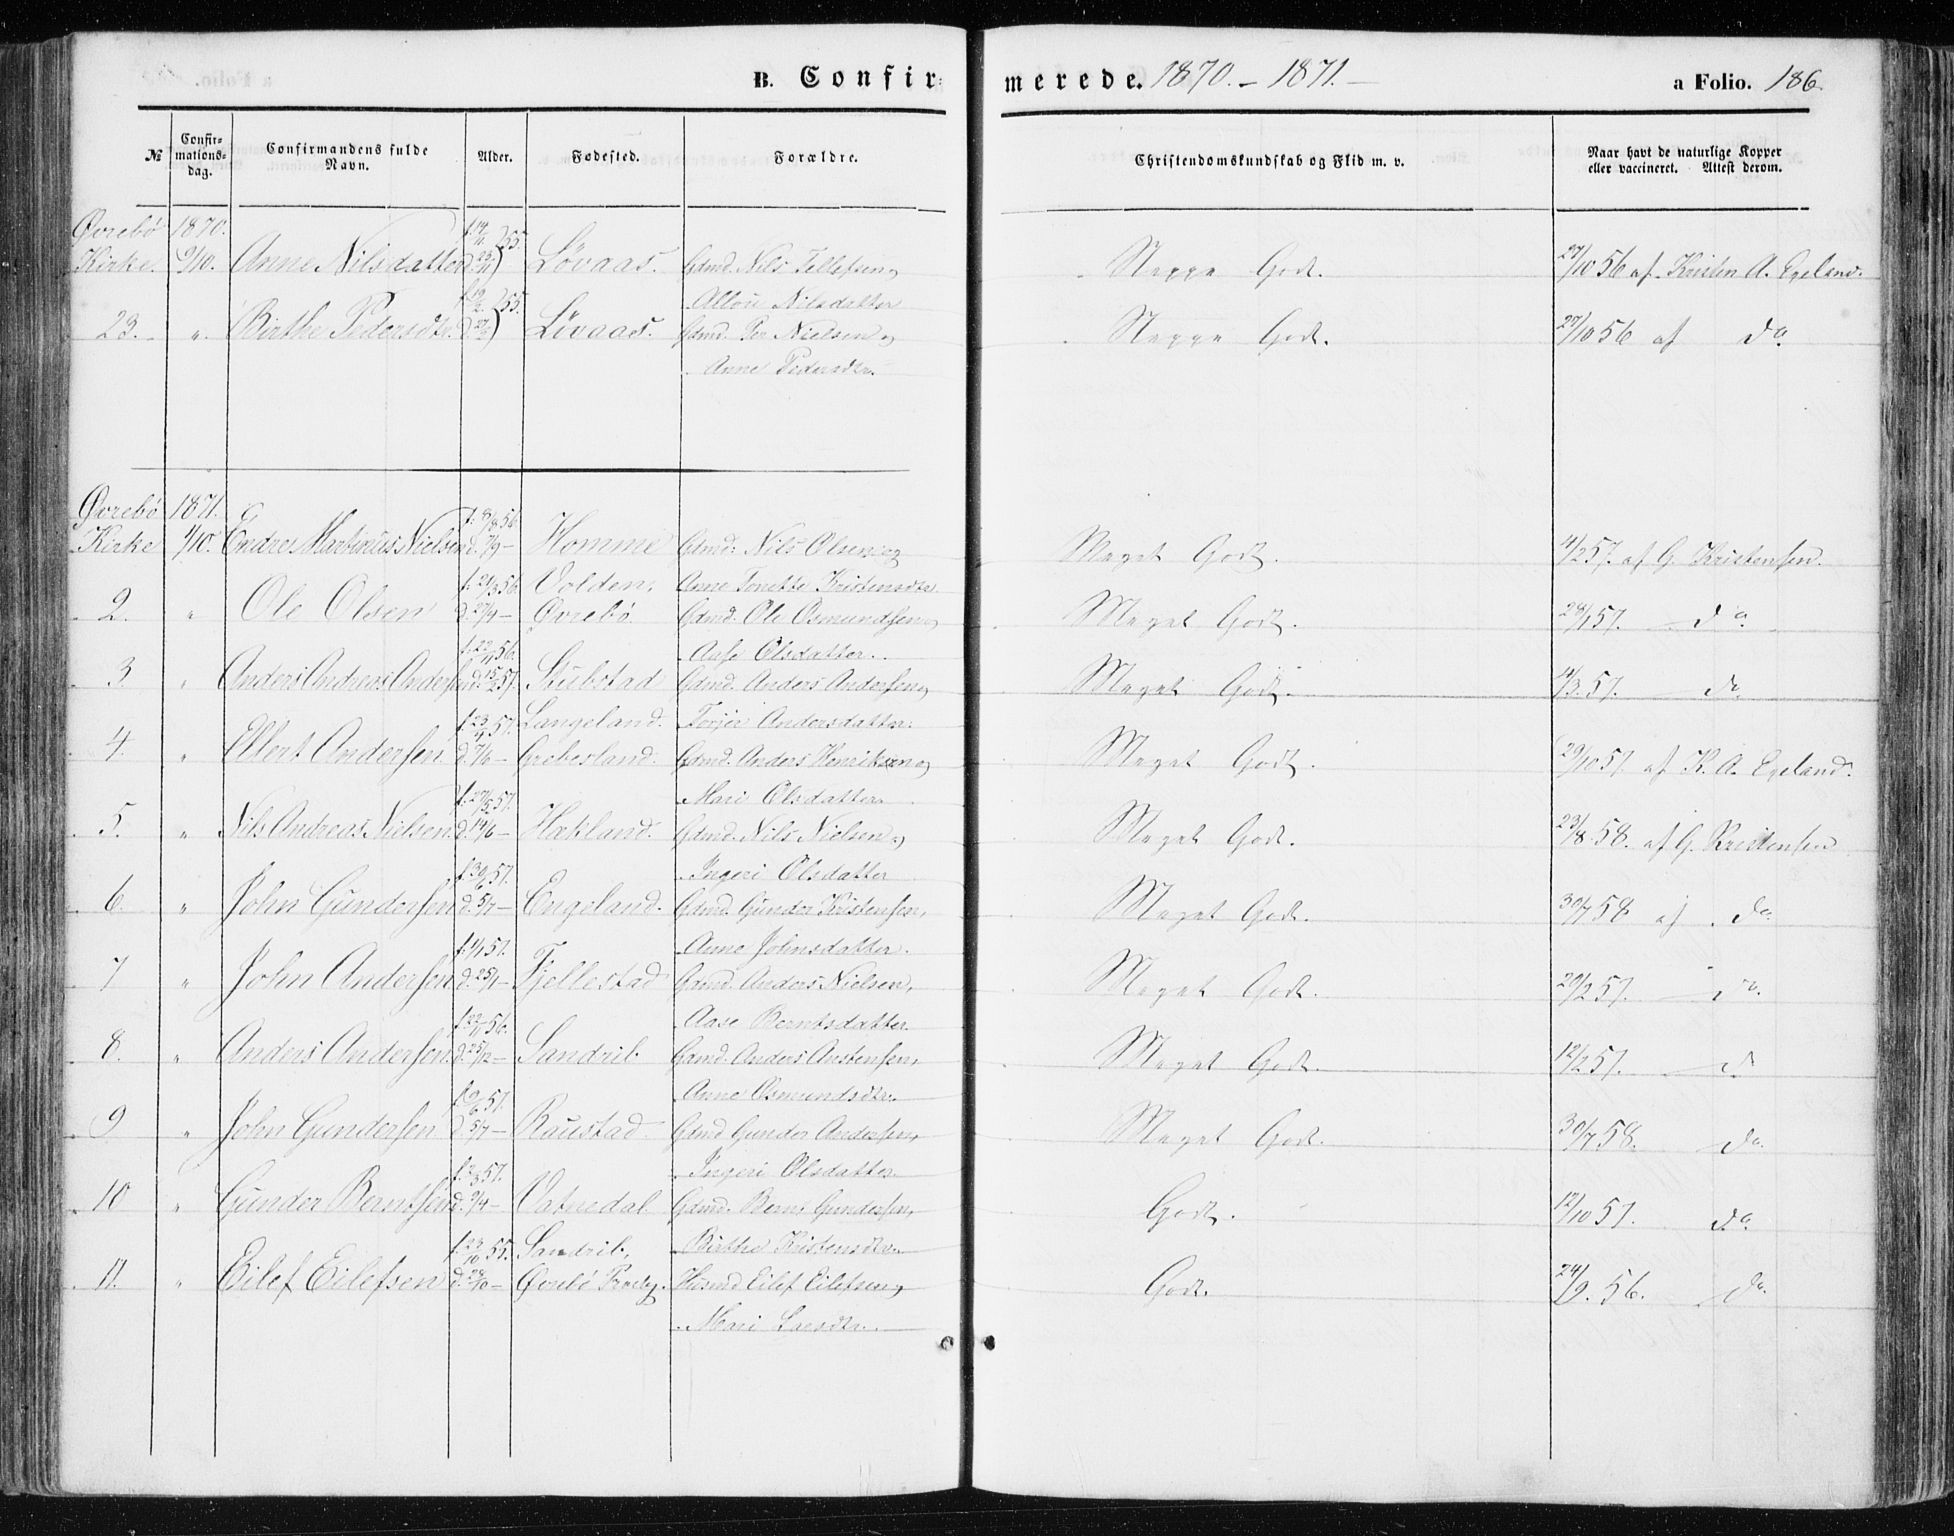 B. Confirmerede. 1870. - 1871. - a Folio. 186.
№ Confirmationsdag. Confirmandens fulde Navn. Alder. Fødested. Forældre. Christendomskundskab og Flid m. v. Naar havt de naturlige Kopper eller vaccineret. Attest derom.
Øvrebö 1870. f. 14/11 55.
Kirke. 9/10. Anne Nilsdatter d. 25/11 Lövaas. Gdmd. Nils Tellefsen og Neppe Godt. 27/10 56 af Kristen A. Egeland.
Nilsdatter
23. " Birthe Pedersdtr. 55. Lövaas. Gdmd. Per Nielsen og Neppe Godt. 27/10 56 af do.
Anne Pedersdtr.
Øvrebö 1871. f. 8/8 56.
Kirke 1/10. Endre Martinius Nielsen d. 7/9 - Homme Gdmd: Nils Olsen og Meget Godt. 4/2 57. af G. Kristensen.
f. 21/3 56. Volden, Anne Tonette Kristensdtr.
2. " Ole Olsen d. 27/4 - Øvrebö. Gdmd. Ole Osmundsen og Meget Godt. 28/1 57. - do.
f. 22/11 56. Aase Olsdatter.
3. " Anders Andreas Andersen d. 15/2 57. Stubstad Gdmd. Anders Andersen og Meget Godt. 4/3 57. - do.
f. 23/4 57. Langeland. Torjer Andersdatter.
4. " Ellert Andersen. d. 7/6 - Grebesland. Gdmd. Anders Henriksen og Meget Godt. 29/10 57 af K. A. Egeland.
f. 27/5 57. Mari Olsdatter.
5. " Nils Andreas Nielsen. d. 14/6 - Hækland. Gdmd. Nils Nielsen og Meget Godt. 23/8 58. af G. Kristensen
f. 30/6 57. Ingeri Olsdatter
6. " John Gundersen d. 5/7 - Engeland. Gdmd. Gunder Kristensen, Meget Godt. 30/7 58 af do.
f. 1/1 57. Anne Johnsdatter.
7 " John Andersen d. 25/1 - Fjellestad Gdmd. Anders Nielsen, Meget Godt. 20/2 57. - do.
56. Aase Berntsdatter.
8. " Anders Andersen. d. 25/12 - Sandrib Gdmd. Anders Anstensen, Meget Godt. 12/2 57. - do
57. Anne Osmundsdtr.
9 " John Gundersen d. 5/7 - Raustad. Gdmd Gunder Andersen, Meget Godt. 30/7 58. do.
f. 3/3 57. Ingeri Olsdatter.
10 " Gunder Berntsen d. 9/4 - Vatnedal Gdmd. Bernt Gundersen, Godt. 12/10 57. do.
f. 23/10 55. Sandrib, Birthe Kristensdtr.
11. " Eilef Eilefsen d. 28/10 - Øvrebö Præstg. Husmd Eilef Eilefsen og Godt. 24/9. 56. do.
Mari Larsdtr.